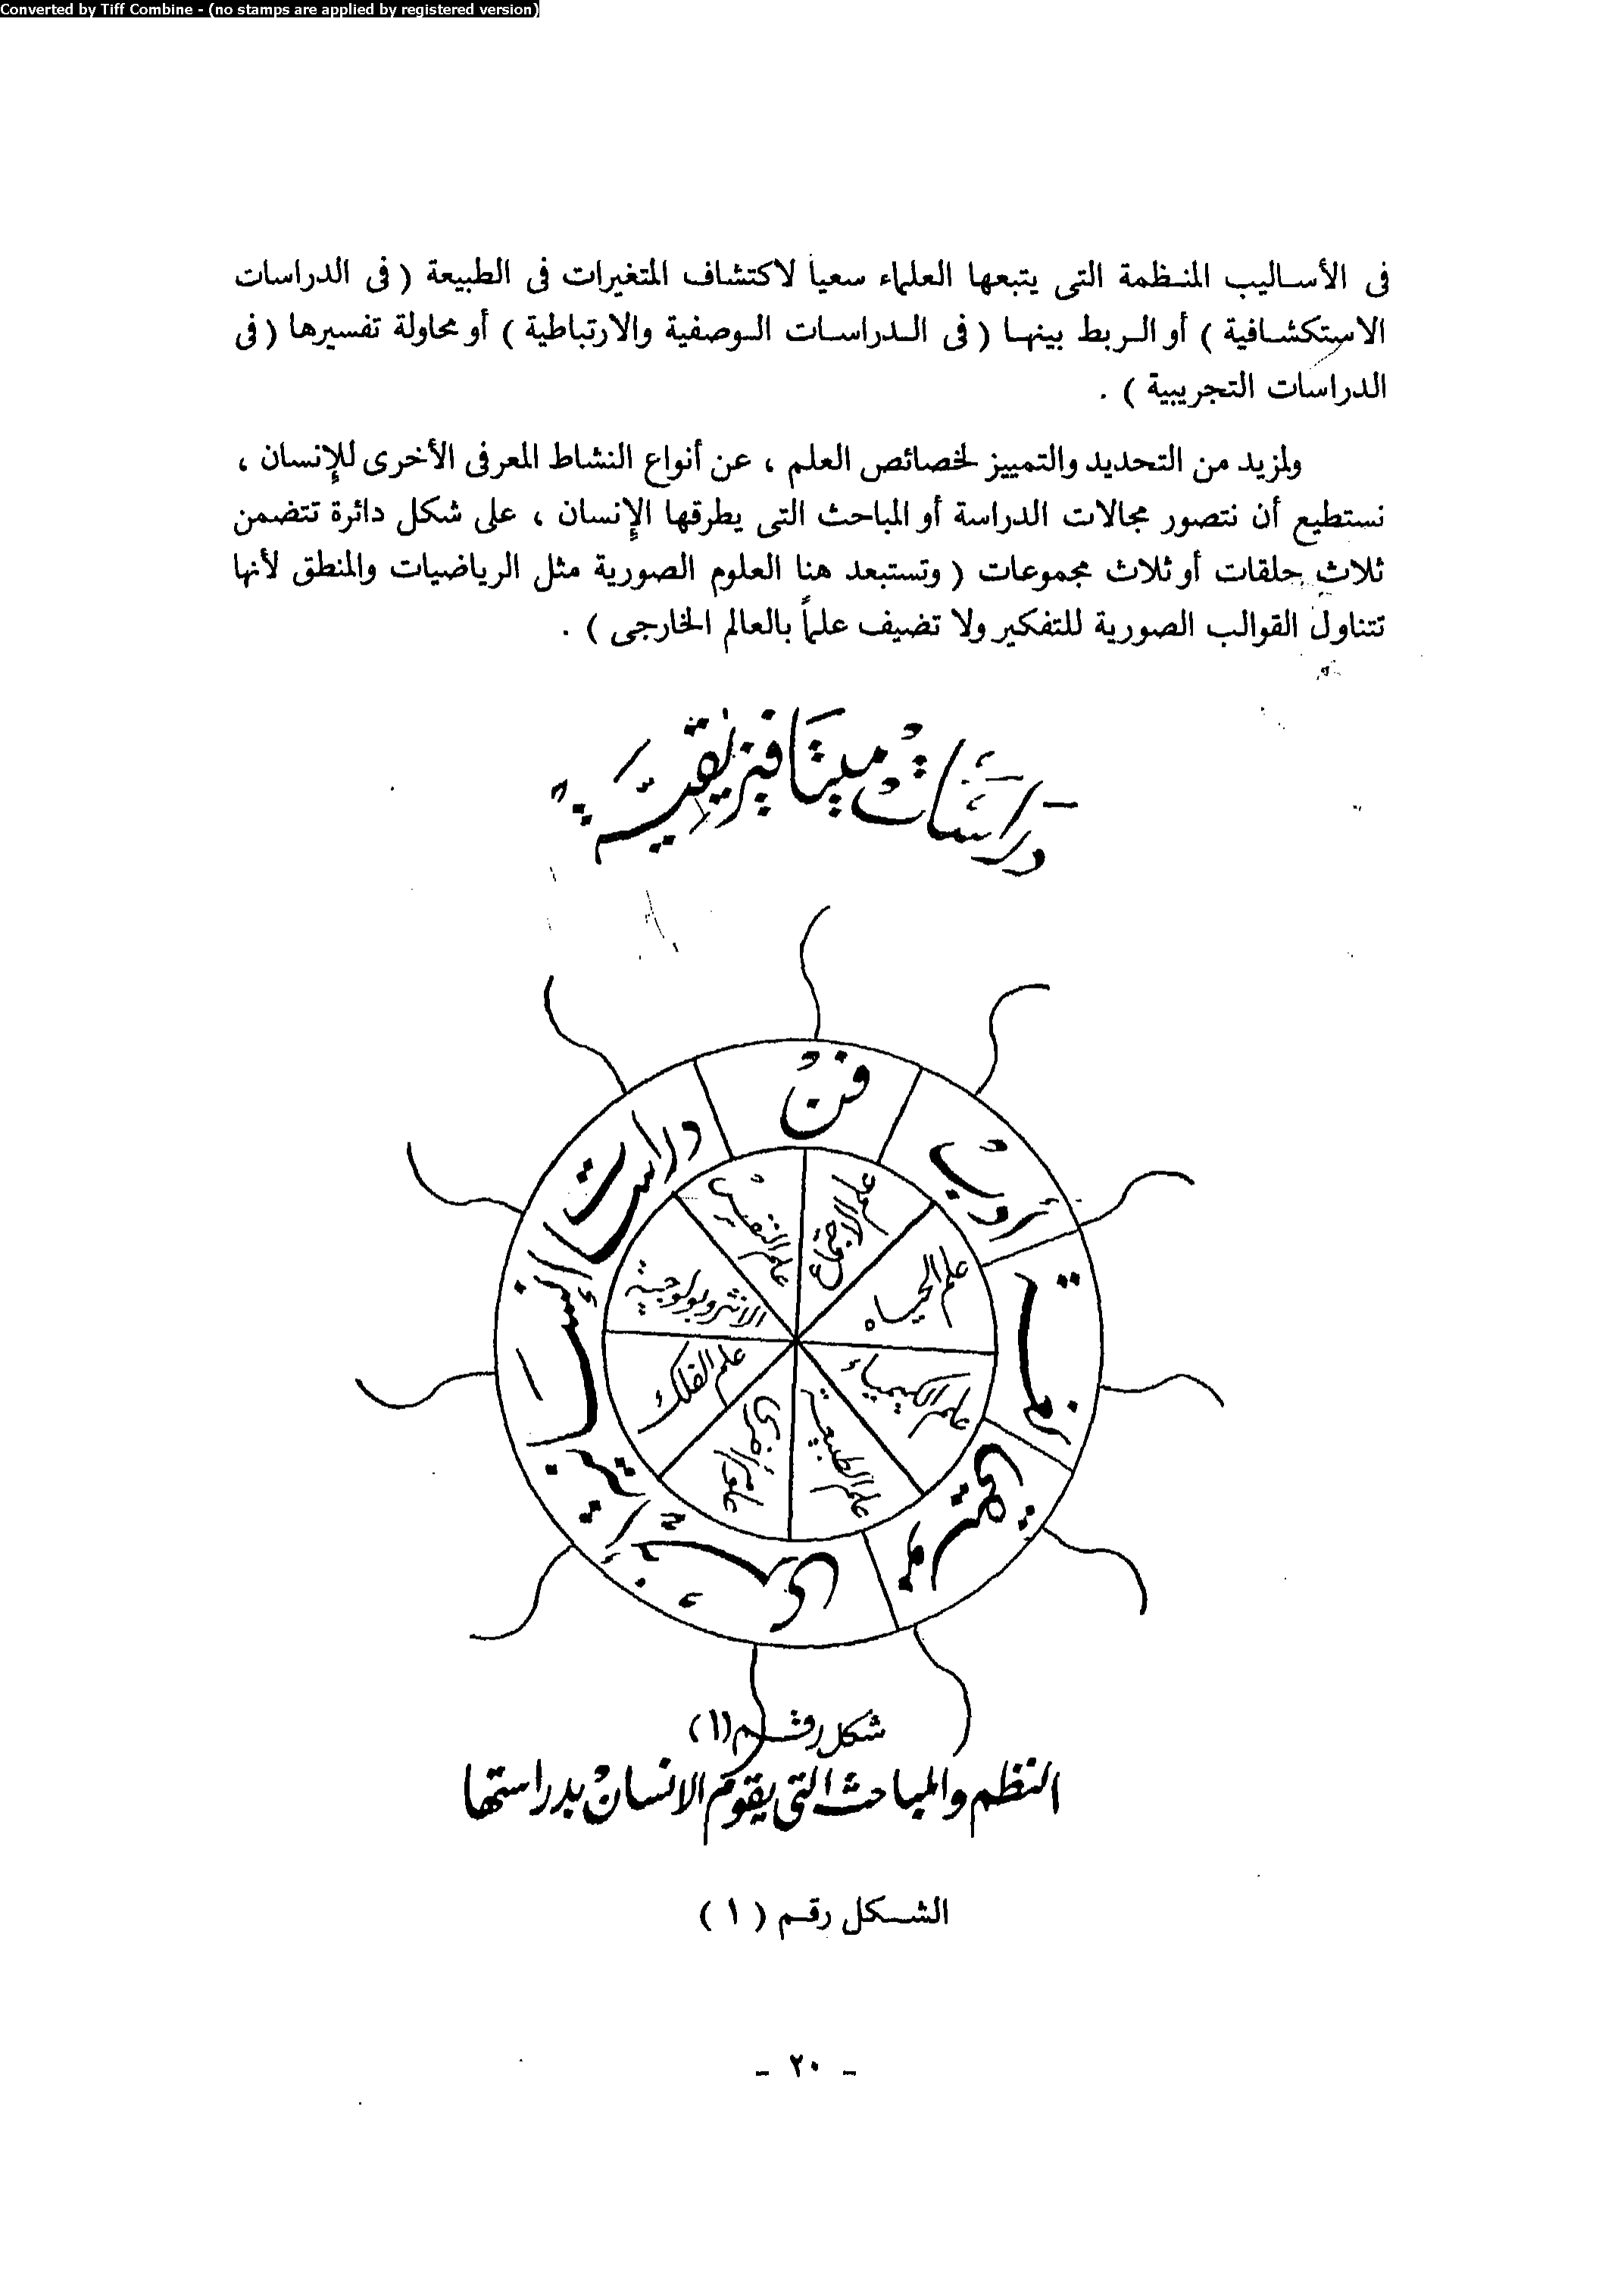 Converted by Tiff Combine - (no stamps are applied by registered version)
فى الأساليب المنظمة التى يتبعها العلماء سعيا لاكتشاف المتغيرات فى الطبيعة ( فى الدراسات
الاستكشافية ) أو الربط بينها ( فى الدراسات الوصفية والارتباطية ) أو محاولة تفسيرها ( فى
الدراسات التجريبية ) .
ولمزيد من التحديد والتمييز لخصائص العلم ، عن أنواع النشاط المعرفى الأخرى للإنسان ،
نستطيع أن نتصور مجالات الدراسة أو المباحث التى يطرقها الإنسان ، على شكل دائرة تتضمن
ثلاث حلقات أو ثلاث مجموعات ( وتستبعد هنا العلوم الصورية مثل الرياضيات والمنطق لأنها
تتناول القوالب الصورية للتفكير ولا تضيف علماً بالعالم الخارجى ) .
دراسات ميتافيزيقية
فن
أدب
دراسات إنسانية
أخرى
موسيقى
علم الاجتماع
علم النفس
علم الحياه
الانثروبولوجية
علم الكيمياء
علم الفلك
علم الطبيعة
علوم أخرى
شكل رقم (١)
النظم والمباحث التى يقوم الانسان بدراستها
الشكل رقم ( ١ )
- ٢٠ -